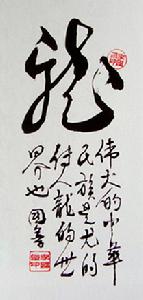 龍
伟大的中華
民族是龙的
传人龍的世
界也